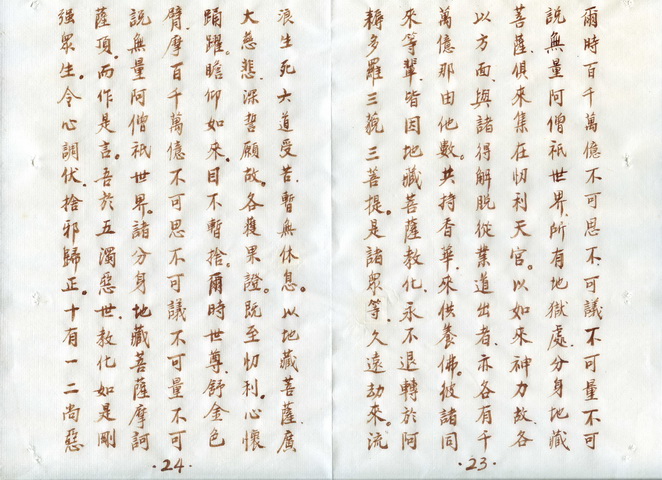 爾時百千萬億不可思不可議不可量不可
說無量阿僧祇世界.所有地獄處.分身地藏
菩薩.俱來集在忉利天宮。以如來神力故.各
以方面.與諸得解脫從業道出者.亦各有千
萬億那由他數。共持香華.來供養佛。彼諸同
來等輩.皆因地藏菩薩教化.永不退轉於阿
耨多羅三藐三菩提。是諸眾等.久遠劫來.流
·23·
浪生死六道受苦.暫無休息。以地藏菩薩.廣
大慈悲.深誓願故.各獲果證。既至忉利.心懷
踊躍。瞻仰如來.目不暫捨。爾時世尊.舒金色
臂.摩百千萬億不可思不可議不可量不可
說無量阿僧祇世界。諸分身地藏菩薩摩訶
薩頂。而作是言。吾於五濁惡世.教化如是剛
强眾生。令心調伏.捨邪歸正。十有一二尚惡
·24·